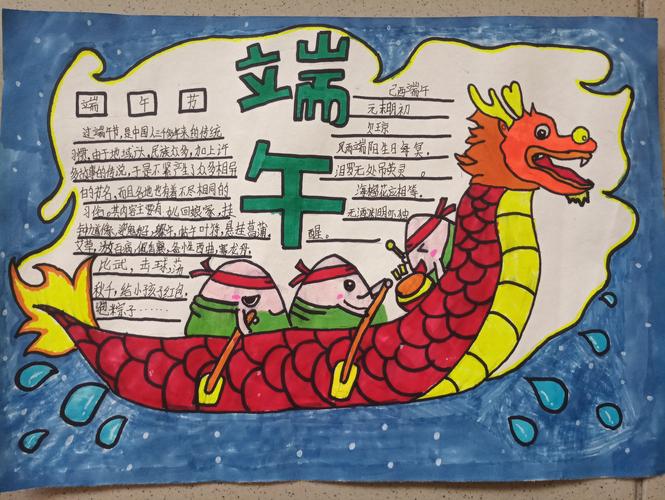 端
午
端 午 节
过端午节,是中国人二千多年来的传统
习惯,由于地域广大,民族众多,加上许
多故事的传说,于是不紧产生了众多相异
的节名,而且各地也有着不尽相同的
习俗。其内容主要有:女儿回娘家,挂
钟馗像,迎鬼船、躲午,帖午叶符,悬挂菖蒲
艾草,游百病,佩香囊,赛龙舟,
比武,击球,荡
秋千,给小孩
粽子……
己酉端午
元末明初
贝琼
风雨端阳生日每冥,
汨罗无处吊英灵。
海榴花应相笑,
无酒渊明亦独
醒。